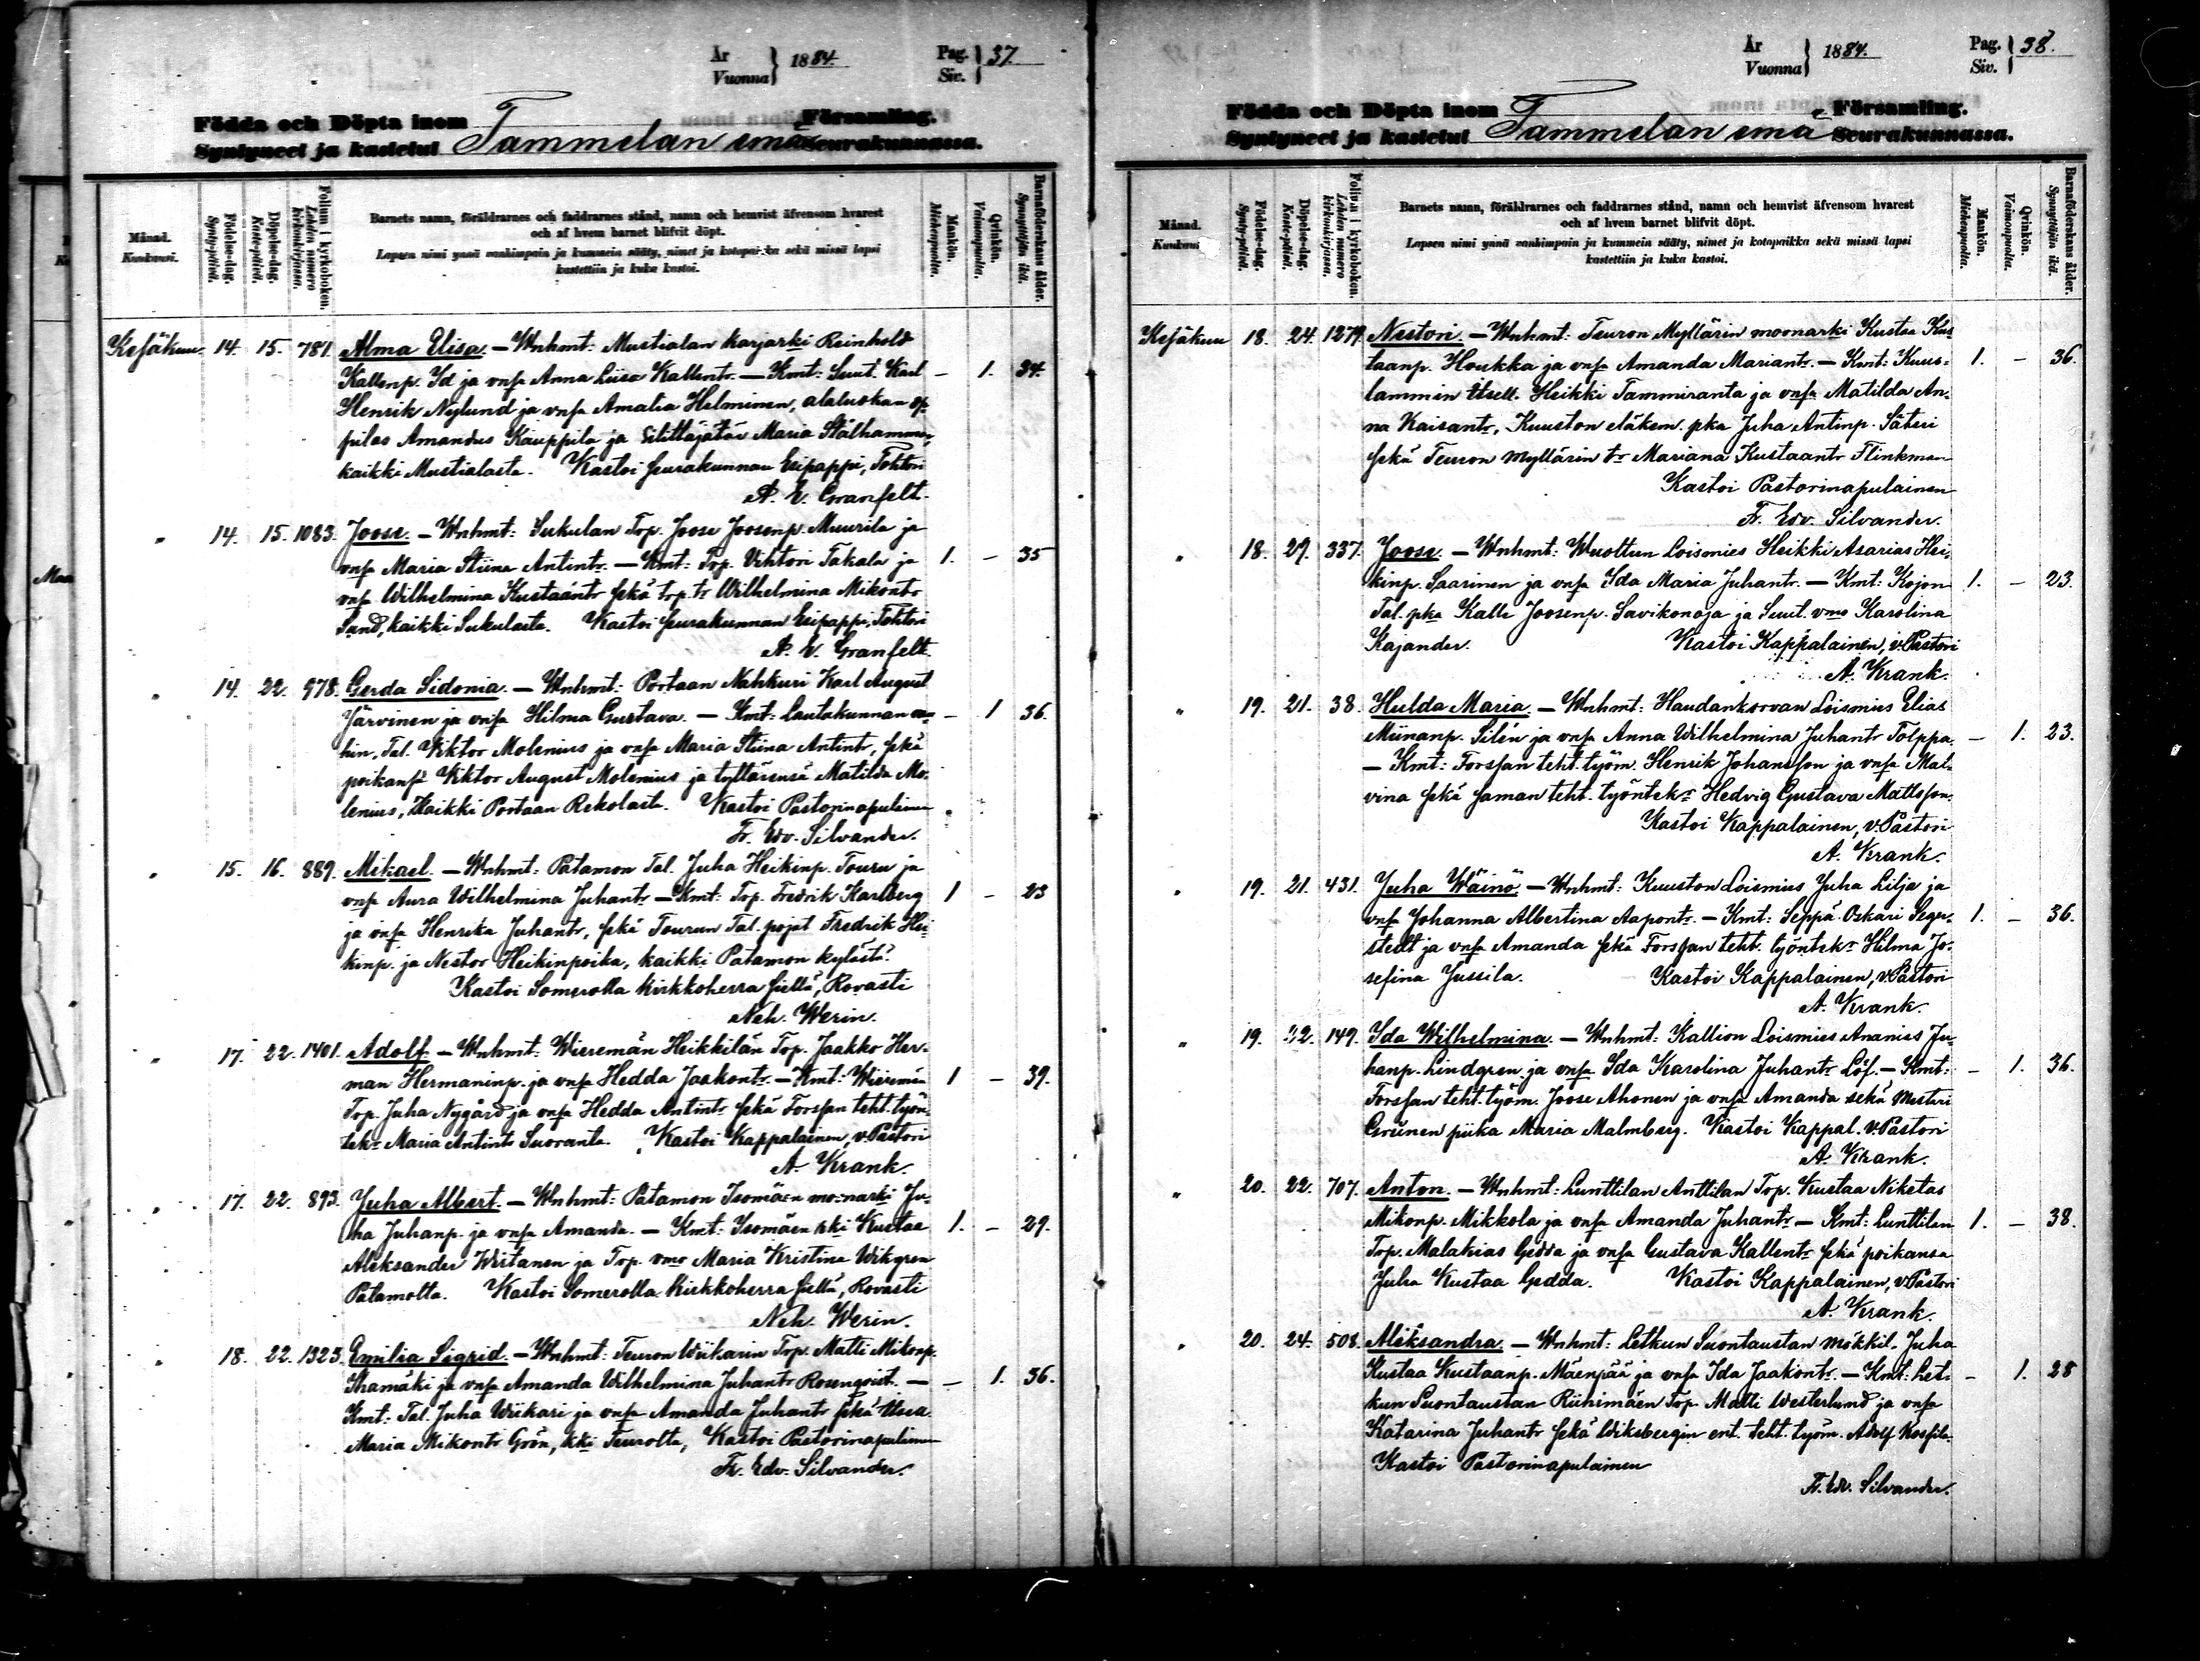 År
Vuonna
1884.
Pag.
Siv.
37
Födda och Döpta inom
Syntyneet ja kastetut
Tammelan emä
Församling.
Seurakunnassa.
Månad.
Kuukausi.
Födelse-dag.
Synty-päivä.
Döpelse-dag.
Kaste-päivä.
Folium i kyrkoboken.
Lehden numero kirkonkirjassa.
Barnets namn, föräldrarnes och faddrarnes stånd, namn och hemvist äfvensom hvarest
och af hvem barnet blifvit döpt.
Lapsen nimi ynnä vanhimpain ja kummein sääty, nimet ja kotopaikka sekä missä lapsi
kastettiin ja kuka kastoi.
Mankön.
Miehenpuolta.
Qvinkön.
Vaimonpuolta.
Barnaföderskans ålder.
Synnyttäjän ikä.
Kesäkuu. 14. 15. 781. Alma Elisa. — Wnhmt: Mustialan karjarki Reinhold
Kallenp. Id ja vnsa Anna Liisa Kallentr. — Kmt: Suut. Karl — 1. 34.
Henrik Nylund ja vnsa Amalia Helminen, alaluokan op-
pilas Amandus Kauppila ja Maria Stålhammar,
kaikki Mustialasta. Kastoi seurakunnan Esipappi, Tohtori
A. V. Granfelt.
" 14. 15. 1083. Joose. — Wnhmt: Sukulan Trp. Joose Joosenp. Muurila ja
vnsa Maria Stiina Antintr. — Kmt: Trp. Vihtori Takala ja 1. — 35
vnsa Wilhelmina Kustaantr sekä trp. tr Wilhelmina Mikontr
Sand, kaikki Sukulasta. Kastoi seurakunnan Esipappi, Tohtori
A. V. Granfelt.
" 14. 22. 978. Gerda Sidonia. — Wnhmt: Portaan Nahkuri Karl August
Järvinen ja vnsa Hilma Gustava. — Kmt: Lautakunnan van- — 1 36.
hin, Tal. Viktor Molenius ja vnsa Maria Stiina Antintr, sekä
poikansa Viktor August Molenius ja tyttärensä Matilda Mo-
lenius, Kaikki Portaan Rekolasta. Kastoi Pastorinapulainen
Fr. Edv. Silvander.
" 15. 16. 889. Mikael. — Wnhmt: Patamon Tal. Juha Heikinp. Touru ja
vnsa Aura Wilhelmina Juhantr — Kmt: Trp. Fredrik Karlberg 1 — 23
ja vnsa Henrika Juhantr, sekä Tourun Tal. pojat Fredrik Hei-
kinp. ja Nestor Heikinpoika, kaikki Patamon kylästä.
Kastoi Somerolla kirkkoherra siellä, Rovasti
Neh. Werin.
" 17. 22. 1401. Adolf — Wnhmt: Wieremän Heikkilän Trp. Jaakko Her-
man Hermaninp. ja vnsa Hedda Jaakontr. — Kmt: Wieremän 1 — 39.
Trp. Juha Nygård ja vnsa Hedda Antintr sekä Forssan teht. työn-
tekr Maria Antintr Suoranta. Kastoi Kappalainen, v. Pastori
A. Krank.
" 17. 22. 893. Juha Albert. — Wnhmt: Patamon Isomäen moonarki Ju-
ha Juhanp. ja vnsa Amanda. — Kmt: Isomäen rki Kustaa 1. — 29.
Aleksander Wirtanen ja Trp. vmo Maria Kristina Wikgren
Patamolta. Kastoi Somerolla kirkkoherra siellä, Rovasti
Neh. Werin.
" 18. 22. 1323. Emilia Sigrid. — Wnhmt: Teuron Wiikarin Trp. Matti Mikonp.
Ihamäki ja vnsa Amanda Wilhelmina Juhantr Rosenqvist. — — 1. 36.
Kmt: Tal. Juha Wiikari ja vnsa Amanda Juhantr sekä
Maria Mikontr Grön, kki Teurolta, Kastoi Pastorinapulainen
Fr. Edv. Silvander.
År
Vuonna
1884.
Pag.
Siv.
38.
Födda och Döpta inom
Syntyneet ja kastetut
Tammelan emä
Församling.
Seurakunnassa.
Månad.
Kuukausi
Födelse-dag.
Synty-päivä.
Döpelse-dag.
Kaste-päivä.
Folium i kyrkoboken.
Lehden numero kirkonkirjassa.
Barnets namn, föräldrarnes och faddrarnes stånd, namn och hemvist äfvensom hvarest
och af hvem barnet blifvit döpt.
Lapsen nimi ynnä vanhimpain ja kummein sääty, nimet ja kotopaikka sekä missä lapsi
kastettiin ja kuka kastoi.
Mankön.
Miehenpuolta.
Qvinkön.
Vaimonpuolta.
Barnaföderskans ålder.
Synnyttäjän ikä.
Kesäkuu 18. 24. 1279. Nestori. — Wnhmt: Teuron Myllärin moonarki Kustaa Kus-
taanp. Houkka ja vnsa Amanda Mariantr. — Kmt: Kuus- 1. — 36.
lammin Itsell. Heikki Tammiranta ja vnsa Matilda An-
na Kaisantr, Kuuston eläkem. pka Juha Antinp. Säteri
sekä Teuron Myllärin tr Mariana Kustaantr Flinkman
Kastoi Pastorinapulainen
Fr. Edv. Silvander.
" 18. 29. 337. Joose. — Wnhmt: Wuoltun Loismies Heikki Asarias Hei-
kinp. Saarinen ja vnsa Ida Maria Juhantr. — Kmt: Kojon 1. — 23.
Tal. pka Kalle Joosenp. Savikonoja ja Suut. vmo Karolina
Kajander. Kastoi Kappalainen, v. Pastori
A. Krank.
" 19. 21. 38. Hulda Maria. — Wnhmt: Haudankorvan Loismies Elias
Miinanp. Silén ja vnsa Anna Wilhelmina Juhantr Tolppa. — 1. 23.
— Kmt: Forssan teht. työm. Henrik Johansson ja vnsa Mal-
vina sekä saman teht. työntekr Hedvig Gustava Mattsson.
Kastoi Kappalainen, v. Pastori
A. Krank.
" 19. 21. 431. Juha Wäinö — Wnhmt: Kuuston Loismies Juha Lilja ja
vnsa Johanna Albertina Aapontr. — Kmt: Seppä Oskari Seger- 1. — 36.
stedt ja vnsa Amanda sekä Forssan teht. työntekr Hilma Jo-
sefina Jussila. Kastoi Kappalainen, v. Pastori
A. Krank.
" 19. 22. 149. Ida Wilhelmina. — Wnhmt: Kallion Loismies Ananias Ju-
hanp. Lindgren ja vnsa Ida Karolina Juhantr Löf. — Kmt: — 1. 36.
Forssan teht. työm. Joose Ahonen ja vnsa Amanda sekä Mestari
Grünen piika Maria Malmberg. Kastoi Kappal. v. Pastori
A. Krank.
" 20. 22. 707. Anton. — Wnhmt: Lunttilan Anttilan Trp. Kustaa Niketas
Mikonp. Mikkola ja vnsa Amanda Juhantr — Kmt: Lunttilan 1. — 38.
Trp. Malakias Gedda ja vnsa Gustava Kallentr sekä poikansa
Juha Kustaa Gedda. Kastoi Kappalainen, v. Pastori
A. Krank.
" 20. 24. 508. Aleksandra. — Wnhmt: Letkun Suontaustan Mökkil. Juha
Kustaa Kustaanp. Mäenpää ja vnsa Ida Jaakontr. — Kmt: Let- — 1. 28
kun Suontaustan Riihimäen Trp. Matti Westerlund ja vnsa
Katarina Juhantr sekä Wiksbergin ent. teht. työm. Adolf
Kastoi Pastorinapulainen
Fr. Edv. Silvander.